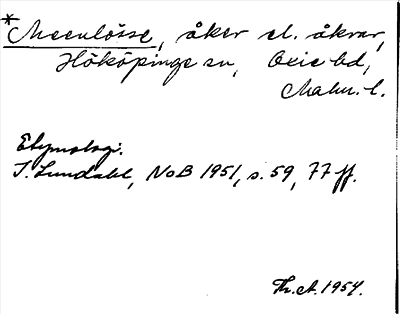 *Meenlösse, åker el. åkrar,
Hököpinge sn, Oxie hd,
Malm. l.
Etymologi.
I. Lundahl, NoB 1951, s. 59, 77 ff.
Th. A. 1954.